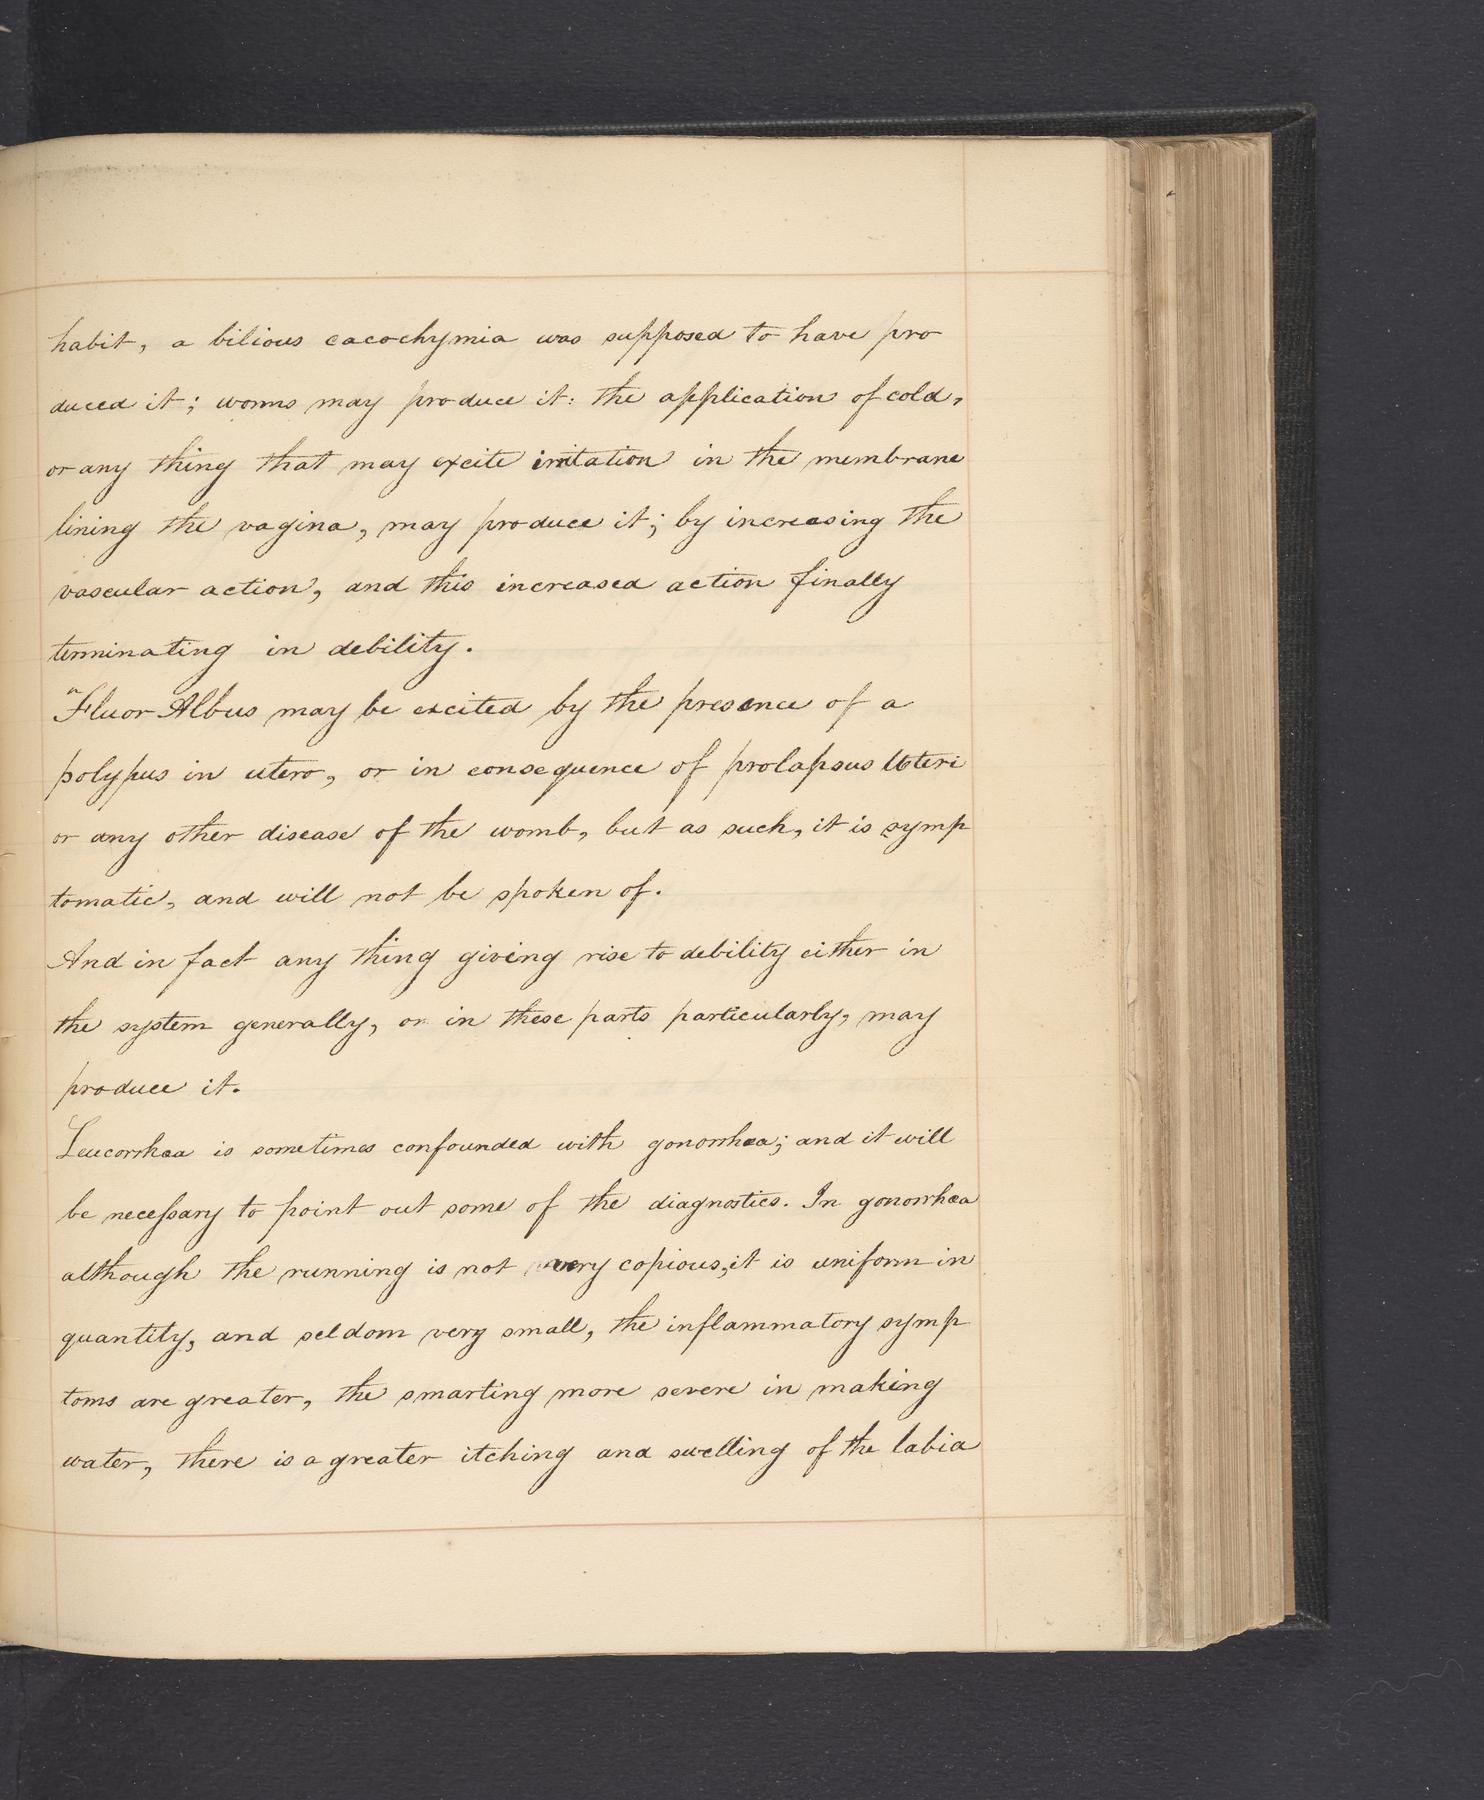 habit, a bilious cacochymia was supposed to have pro
duced it; worms may produce it: the application of cold,
or any thing that may excite irritation in the membrane
lining the vagina, may produce it; by increasing the
vascular action, and this increased action finally
terminating in debility.
"Fluor Albus may be excited by the presence of a
polypus in utero, or in consequence of prolapsus Uteri
or any other disease of the womb, but as such, it is symp
tomatic, and will not be spoken of.
And in fact any thing giving rise to debility either in
the system generally, or in these parts particularly, may
produce it.
Leucorrhœa is sometimes confounded with gonorrhœa; and it will
be necessary to point out some of the diagnostics. In gonorrhœa
although the running is not very copious, it is uniform in
quantity, and seldom very small, the inflammatory symp
toms are greater, the smarting more severe in making
water, there is a greater itching and swelling of the labia